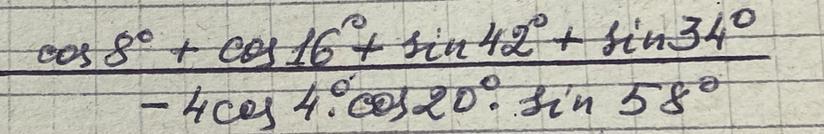 cos 8° + cos 16° + sin 42° + sin 34°
- 4 cos 4° · cos 20° · sin 58°